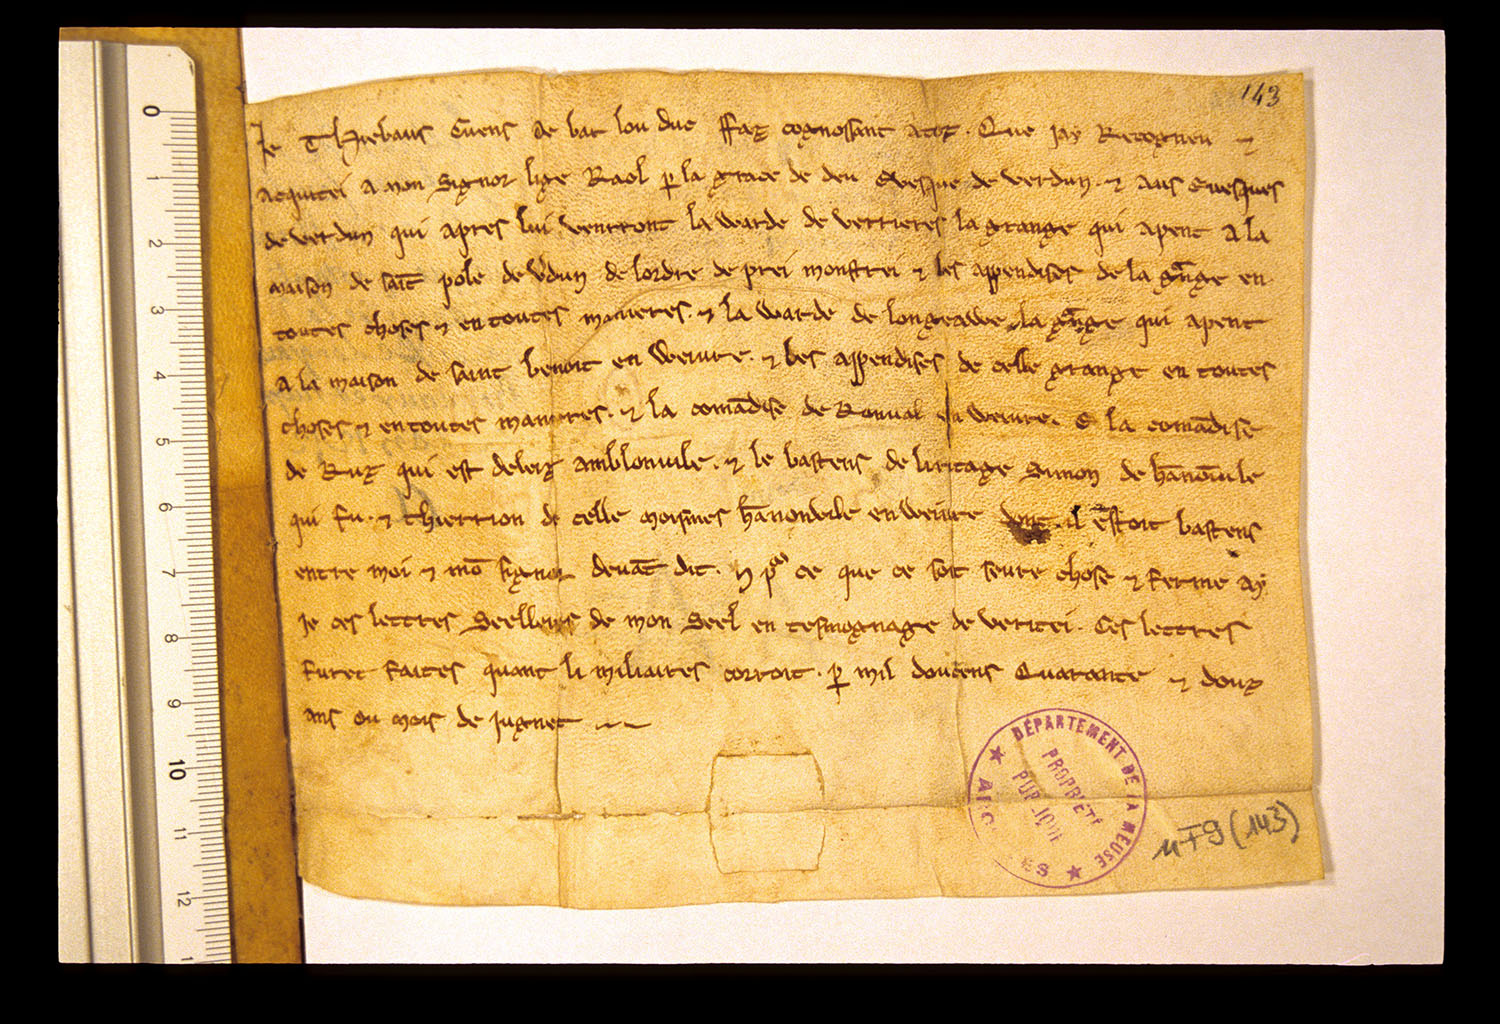 143
Je Thiebaus Cuens de bar lou duc Faz cognossant a toz . Que jay Recogneu ⁊
Acquitei A mon Signor lige Raol p la grace de deu Evesque de verdun . ⁊ Aus Evesques
de verdun qui apres lui venrront la warde de verrieres la grange qui apent A la
maison de sait pole de vdun de lordre de prei monstrei ⁊ les appendises de la gnge en
toutes choses ⁊ en toutes manieres . ⁊ la warde de longeawe la gnge qui apent
A la maison de saint benoit en Weivre . ⁊ les appendises de celle grange en toutes
choses ⁊ en toutes manieres . ⁊ la comādise de Ronval en weivre . ⁊ la comādise
de Ruz qui est deleiz amblonville . ⁊ le bastens de liritage Simon de hānōvile
qui fu . ⁊ thierrion de celle moismes hānonvile en weivre dont il estoit bastens
entre moi ⁊ mō signor devāt dit . ⁊ p ce que ce soit seure chose ⁊ ferme ay
je ces lettres Seellees de mon Seel en tesmognage de veritei . Ces lettres
furēt faites quant li miliaires corroit . p mil doucens Quarante ⁊ douz
ans ou mois de jugnet
★ DÉPARTEMENT DE LA MEUSE ★
PROPRIÉTÉ
PUBLIQUE
11 F 9 (143)
0
1
2
3
4
5
6
7
8
9
10
11
12
1